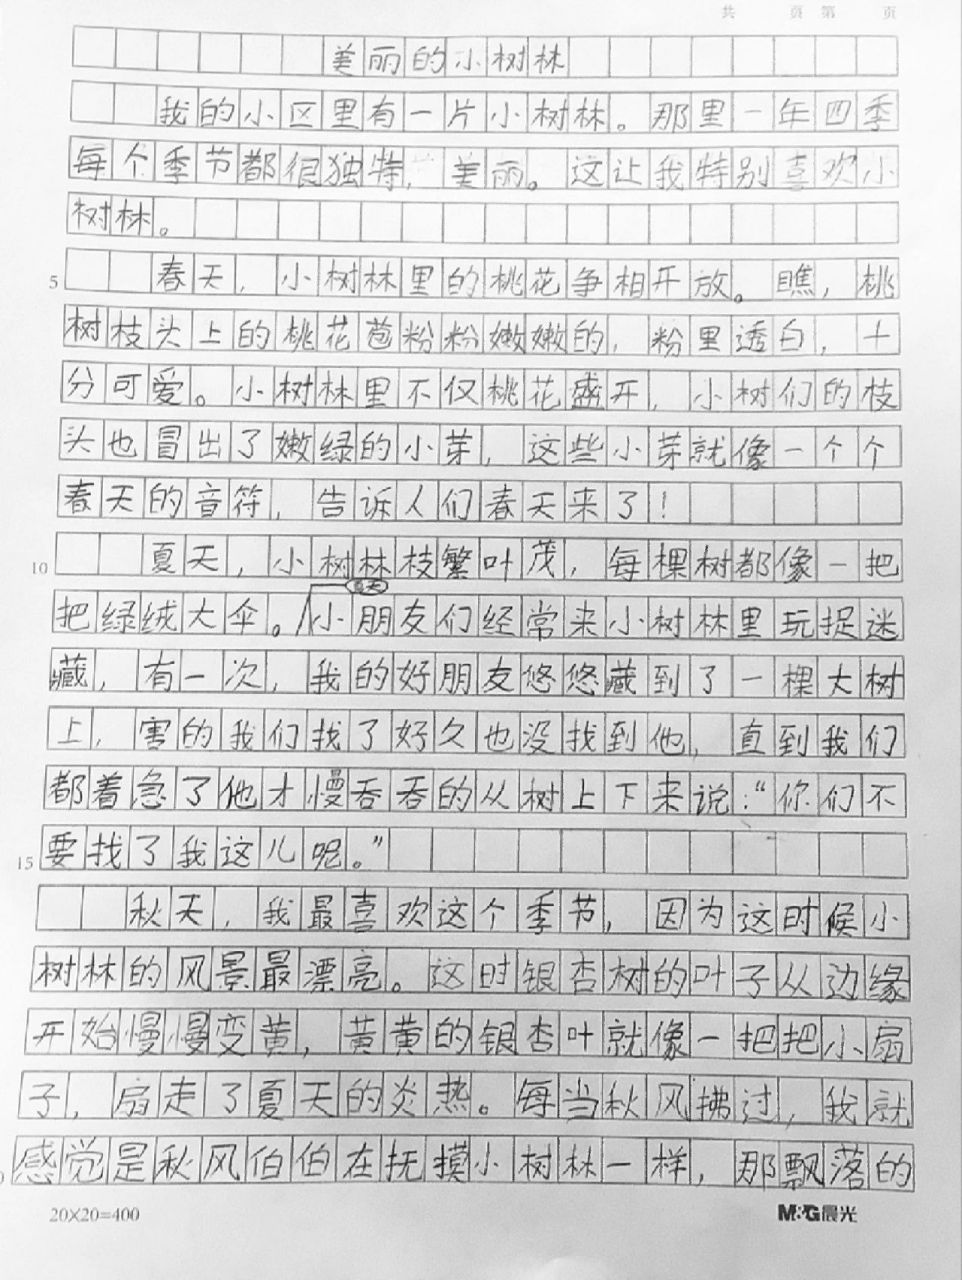 共 页 第 页
美丽的小树林
我的小区里有一片小树林。那里一年四季
每个季节都很独特，美丽。这让我特别喜欢小
树林。
5 春天，小树林里的桃花争相开放。瞧，桃
树枝头上的桃花苞粉粉嫩嫩的，粉里透白，十
分可爱。小树林里不仅桃花盛开，小树们的枝
头也冒出了嫩绿的小芽，这些小芽就像一个个
春天的音符，告诉人们春天来了！
10 夏天，小树林枝繁叶茂，每棵树都像一把
夏天
把绿绒大伞。小朋友们经常来小树林里玩捉迷
藏，有一次，我的好朋友悠悠藏到了一棵大树
上，害的我们找了好久也没找到他，直到我们
都着急了他才慢吞吞的从树上下来说：“你们不
15 要找了我这儿呢。”
秋天，我最喜欢这个季节，因为这时候小
树林的风景最漂亮。这时银杏树的叶子从边缘
开始慢慢变黄，黄黄的银杏叶就像一把把小扇
子，扇走了夏天的炎热。每当秋风拂过，我就
感觉是秋风伯伯在抚摸小树林一样，那飘落的
20×20=400 M&G晨光